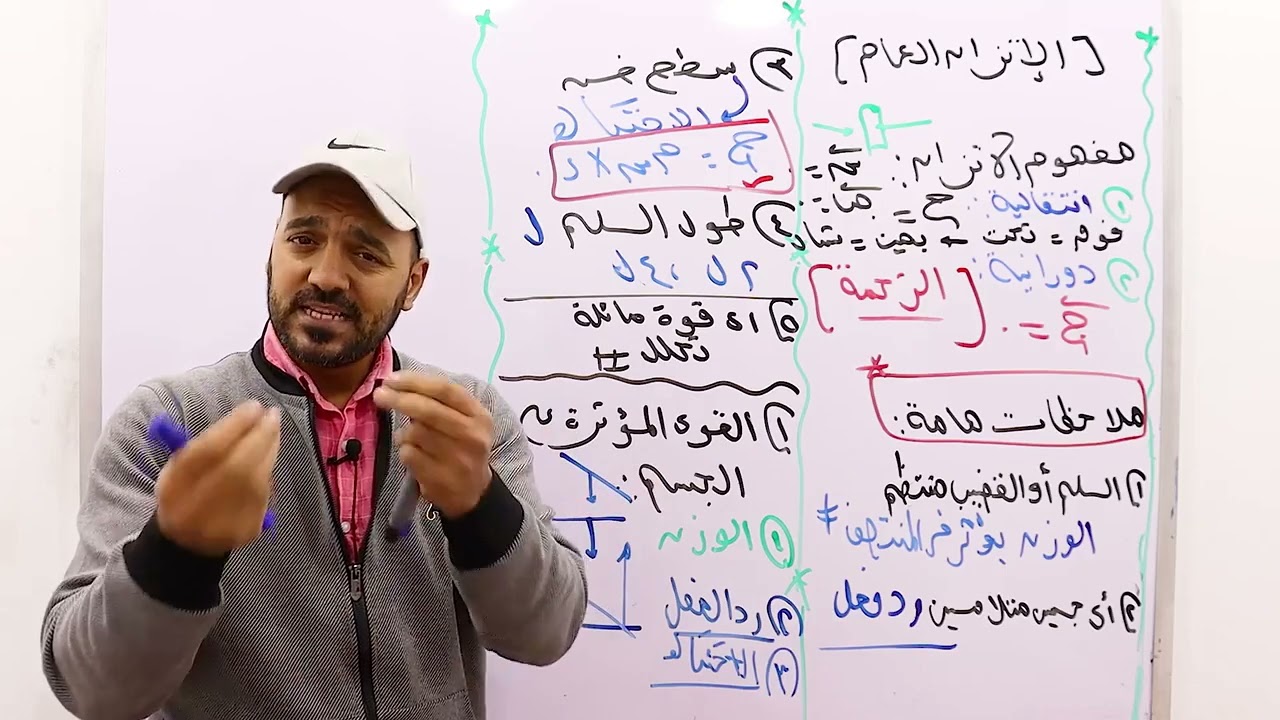 [الإتزان العام]
مفهوم الاتزان:
① انتقالية:
فوق = تحت ← يمين = شمال
② دورانية: [العزم] = ٠
ملاحظات هامة:
١) السلم أو القضيب منتظم
الوزن يؤثر في المنتصف
٢) أى جسمين متلامسين رد فعل
٣) سطح خشن
الاحتكاك
ح = م س × ر
٤) طول السلم ل
٢ ل ، ٤ ل
٥) اى قوة مائلة
تحلل
١) القوى المؤثرة على
الجسم:
① الوزن
② رد الفعل
③ الاحتكاك